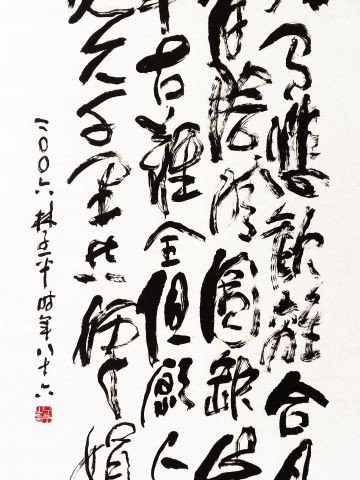 有悲歡離合月
有陰晴圓缺此
事古難全但願人
久千里共嬋娟
二〇〇六林子平时年八十六